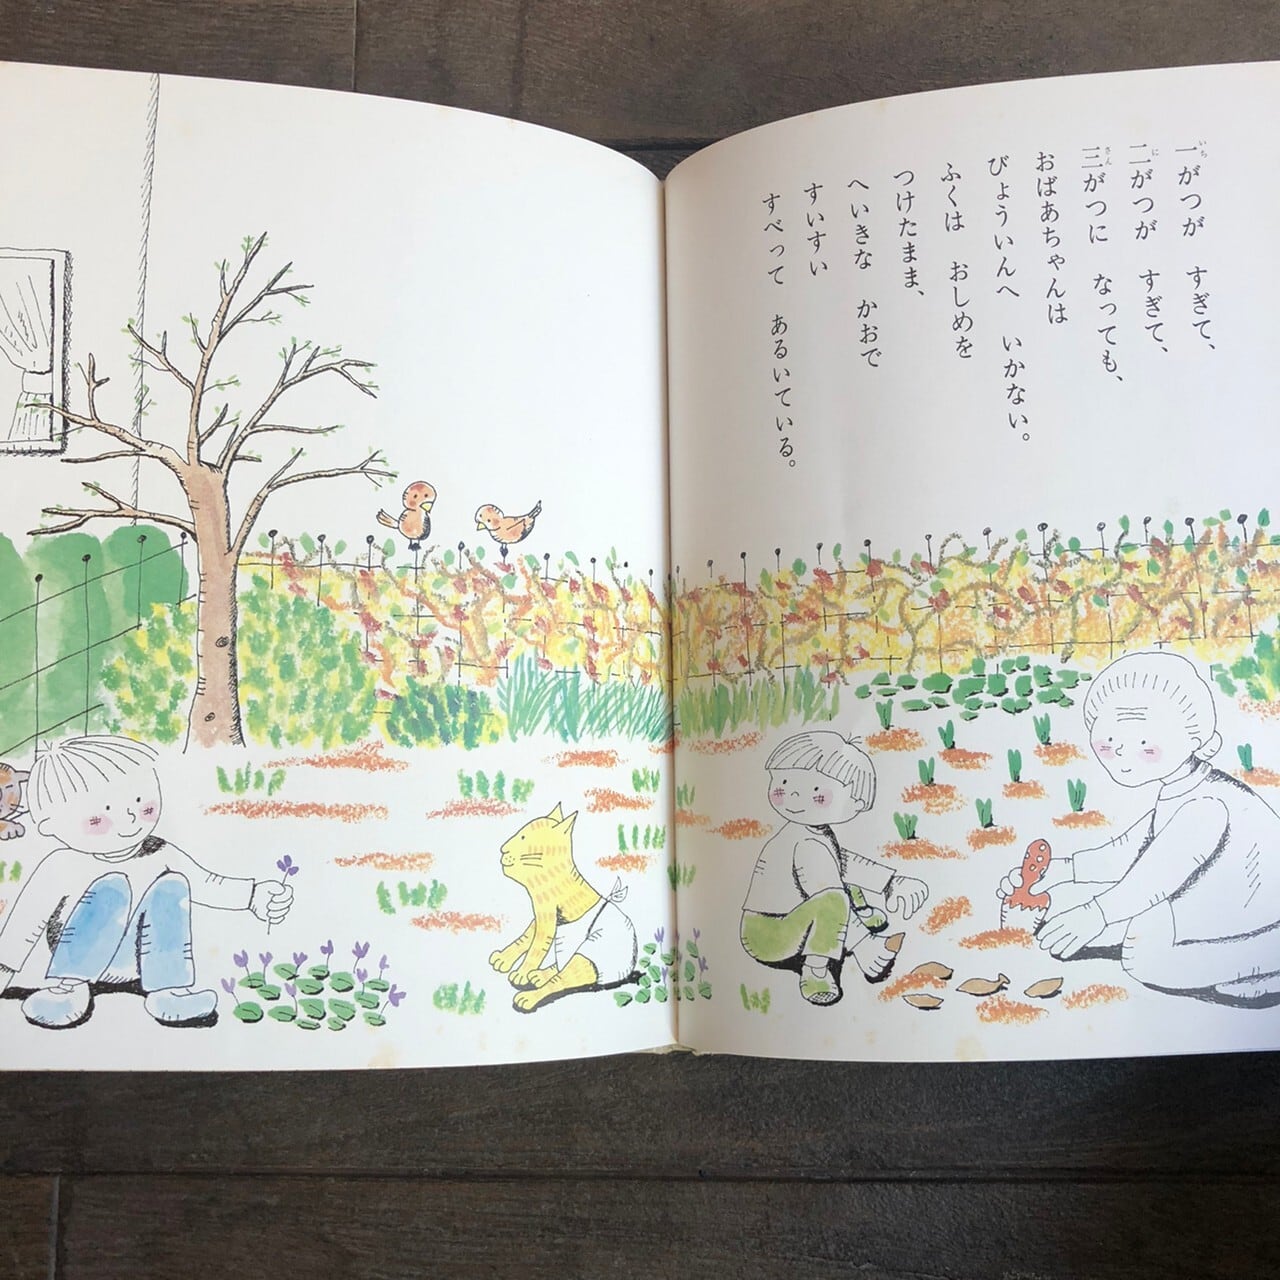 一がつが　すぎて、
二がつが　すぎて、
三がつに　なっても、
おばあちゃんは
びょういんへ　いかない。
ふくは　おしめを
つけたまま、
へいきな　かおで
すいすい
すべって　あるいている。